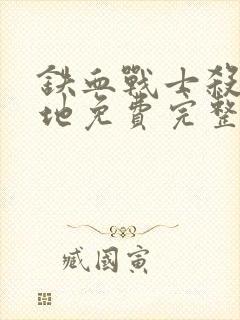 鉄血戰士殺
地免費完整
臧國寅